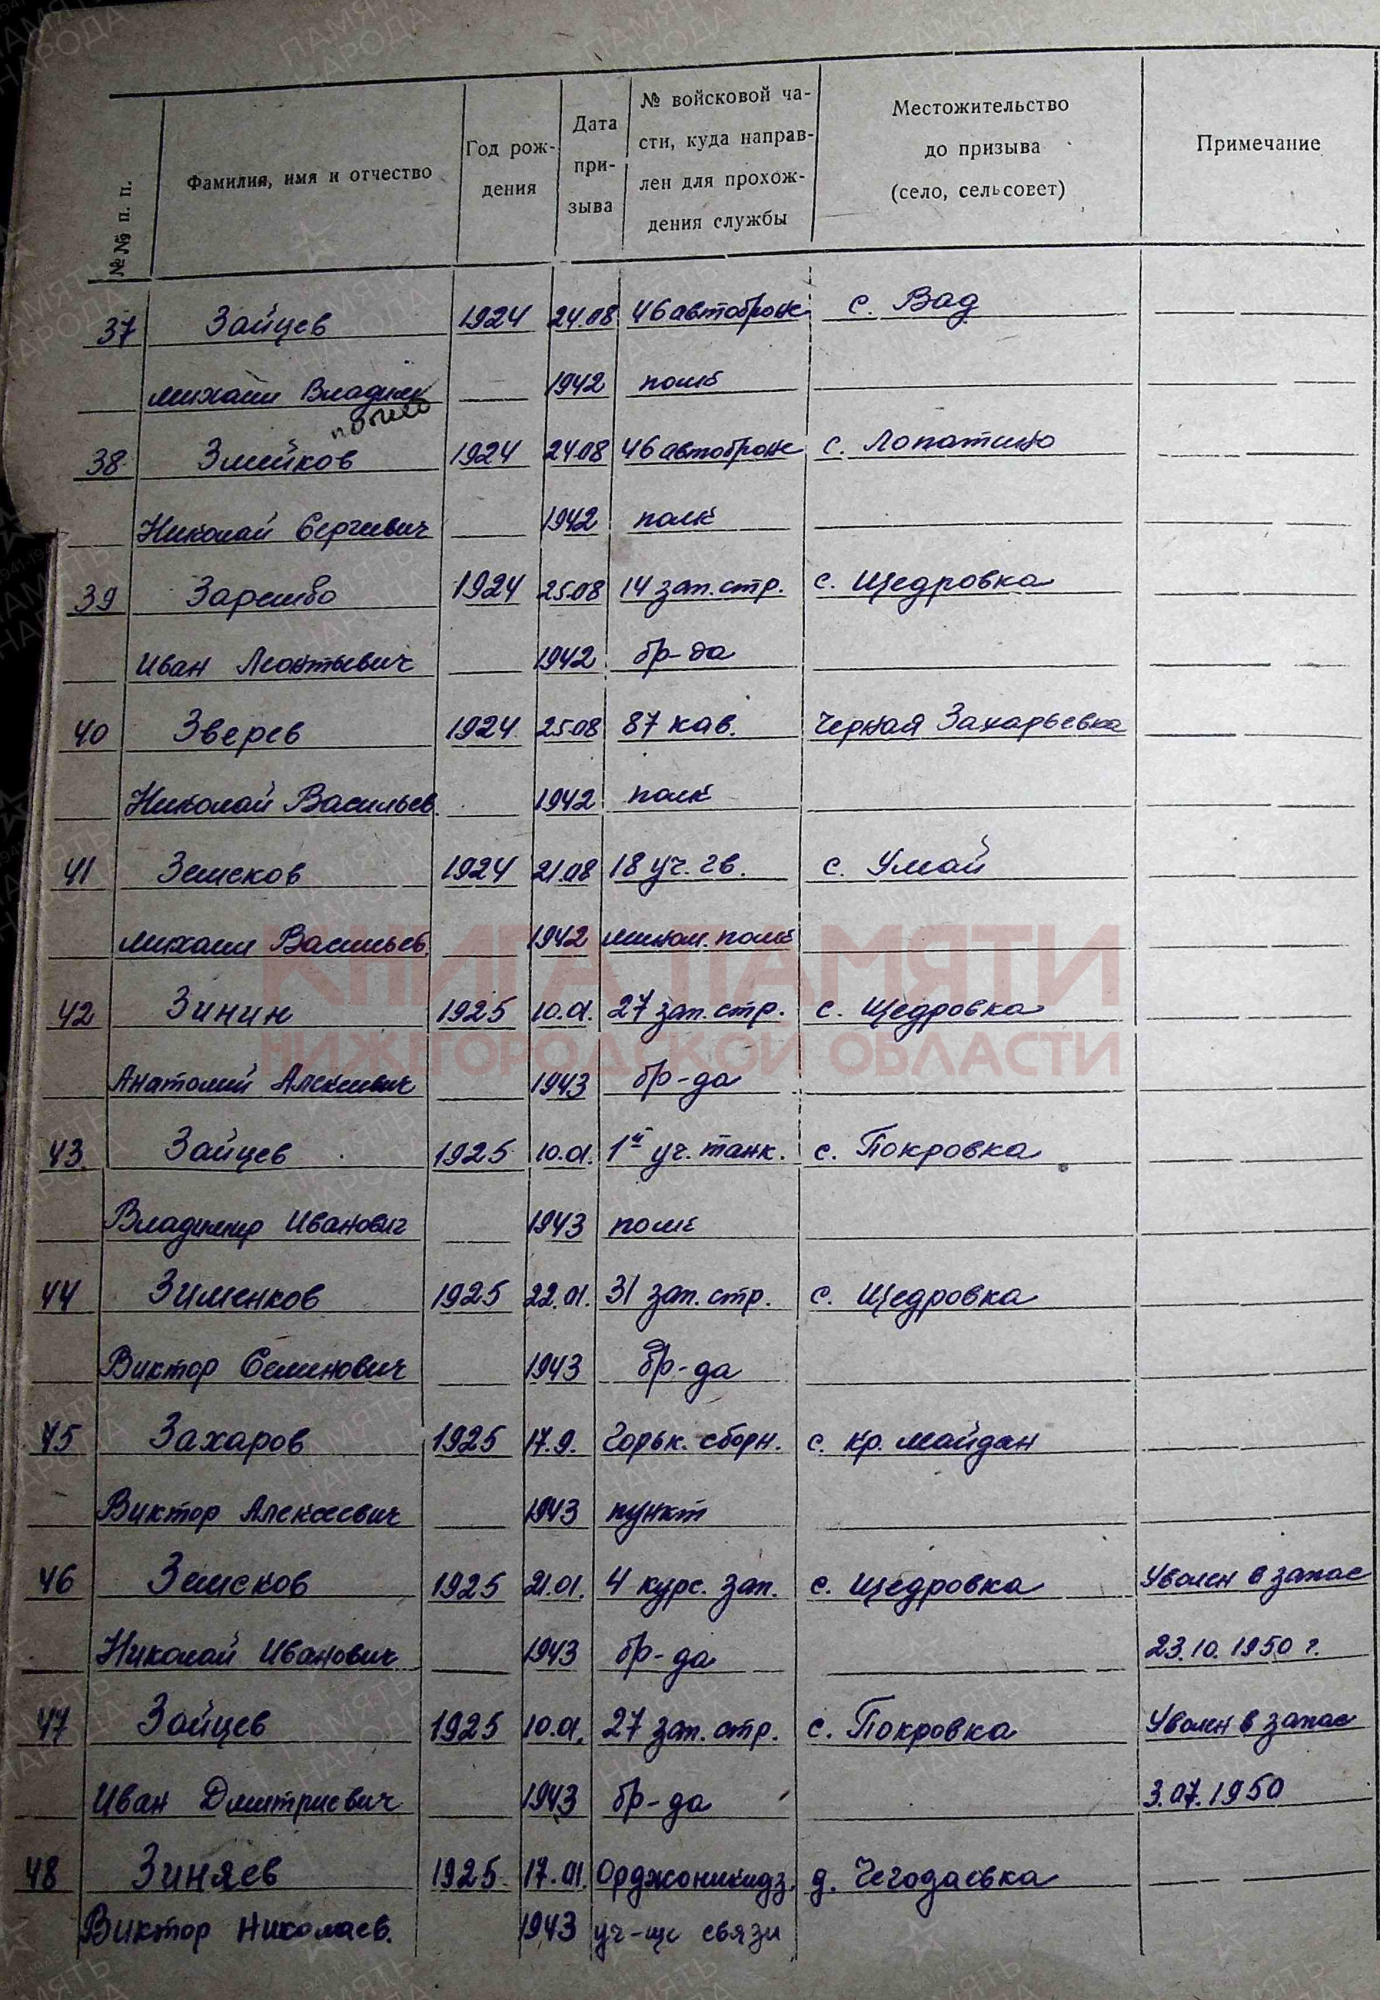 №№ п. п. Фамилия, имя и отчество Год рождения Дата призыва № войсковой части, куда направлен для прохождения службы Местожительство до призыва (село, сельсовет) Примечание
37 Зайцев 1924 24.08 46 автоброн с. Вад
Михаил Владим 1942 полк
погиб
38. Змейков 1924 24.08 46 автоброн с. Лопатино
Николай Сергеевич 1942 полк
39 Зарембо 1924 25.08 14 зап. стр. с. Щедровка
Иван Леонтьевич 1942 бр-да
40 Зверев 1924 25.08 87 кав. Черная Захарьевка
Николай Васильев. 1942 полк
41 Земсков 1924 21.08 18 уч. гв. с. Умай
Михаил Васильев. 1942 мином. полк
КНИГА ПАМЯТИ
42 Зинин 1925 10.01. 27 зап. стр. с. Щедровка
НИЖЕГОРОДСКОЙ ОБЛАСТИ
Анатолий Алексеевич 1943 бр-да
43. Зайцев 1925 10.01. 1й уч. танк. с. Покровка
Владимир Иванович 1943 полк
44 Зименков 1925 22.01. 31 зап. стр. с. Щедровка
Виктор Семенович 1943 бр-да
45 Захаров 1925 17.9. Горьк. сборн. с. Кр. Майдан
Виктор Алексеевич 1943 пункт
46 Земсков 1925 21.01. 4 курс. зап. с. Щедровка Уволен в запас
Николай Иванович 1943 бр-да 23.10.1950 г.
47 Зайцев 1925 10.01. 27 зап. стр. с. Покровка Уволен в запас
Иван Дмитриевич 1943 бр-да 3.07.1950
48 Зиняев 1925. 17.01. Орджоникидз. д. Чегодаевка
Виктор Николаев. 1943 уч-ще связи